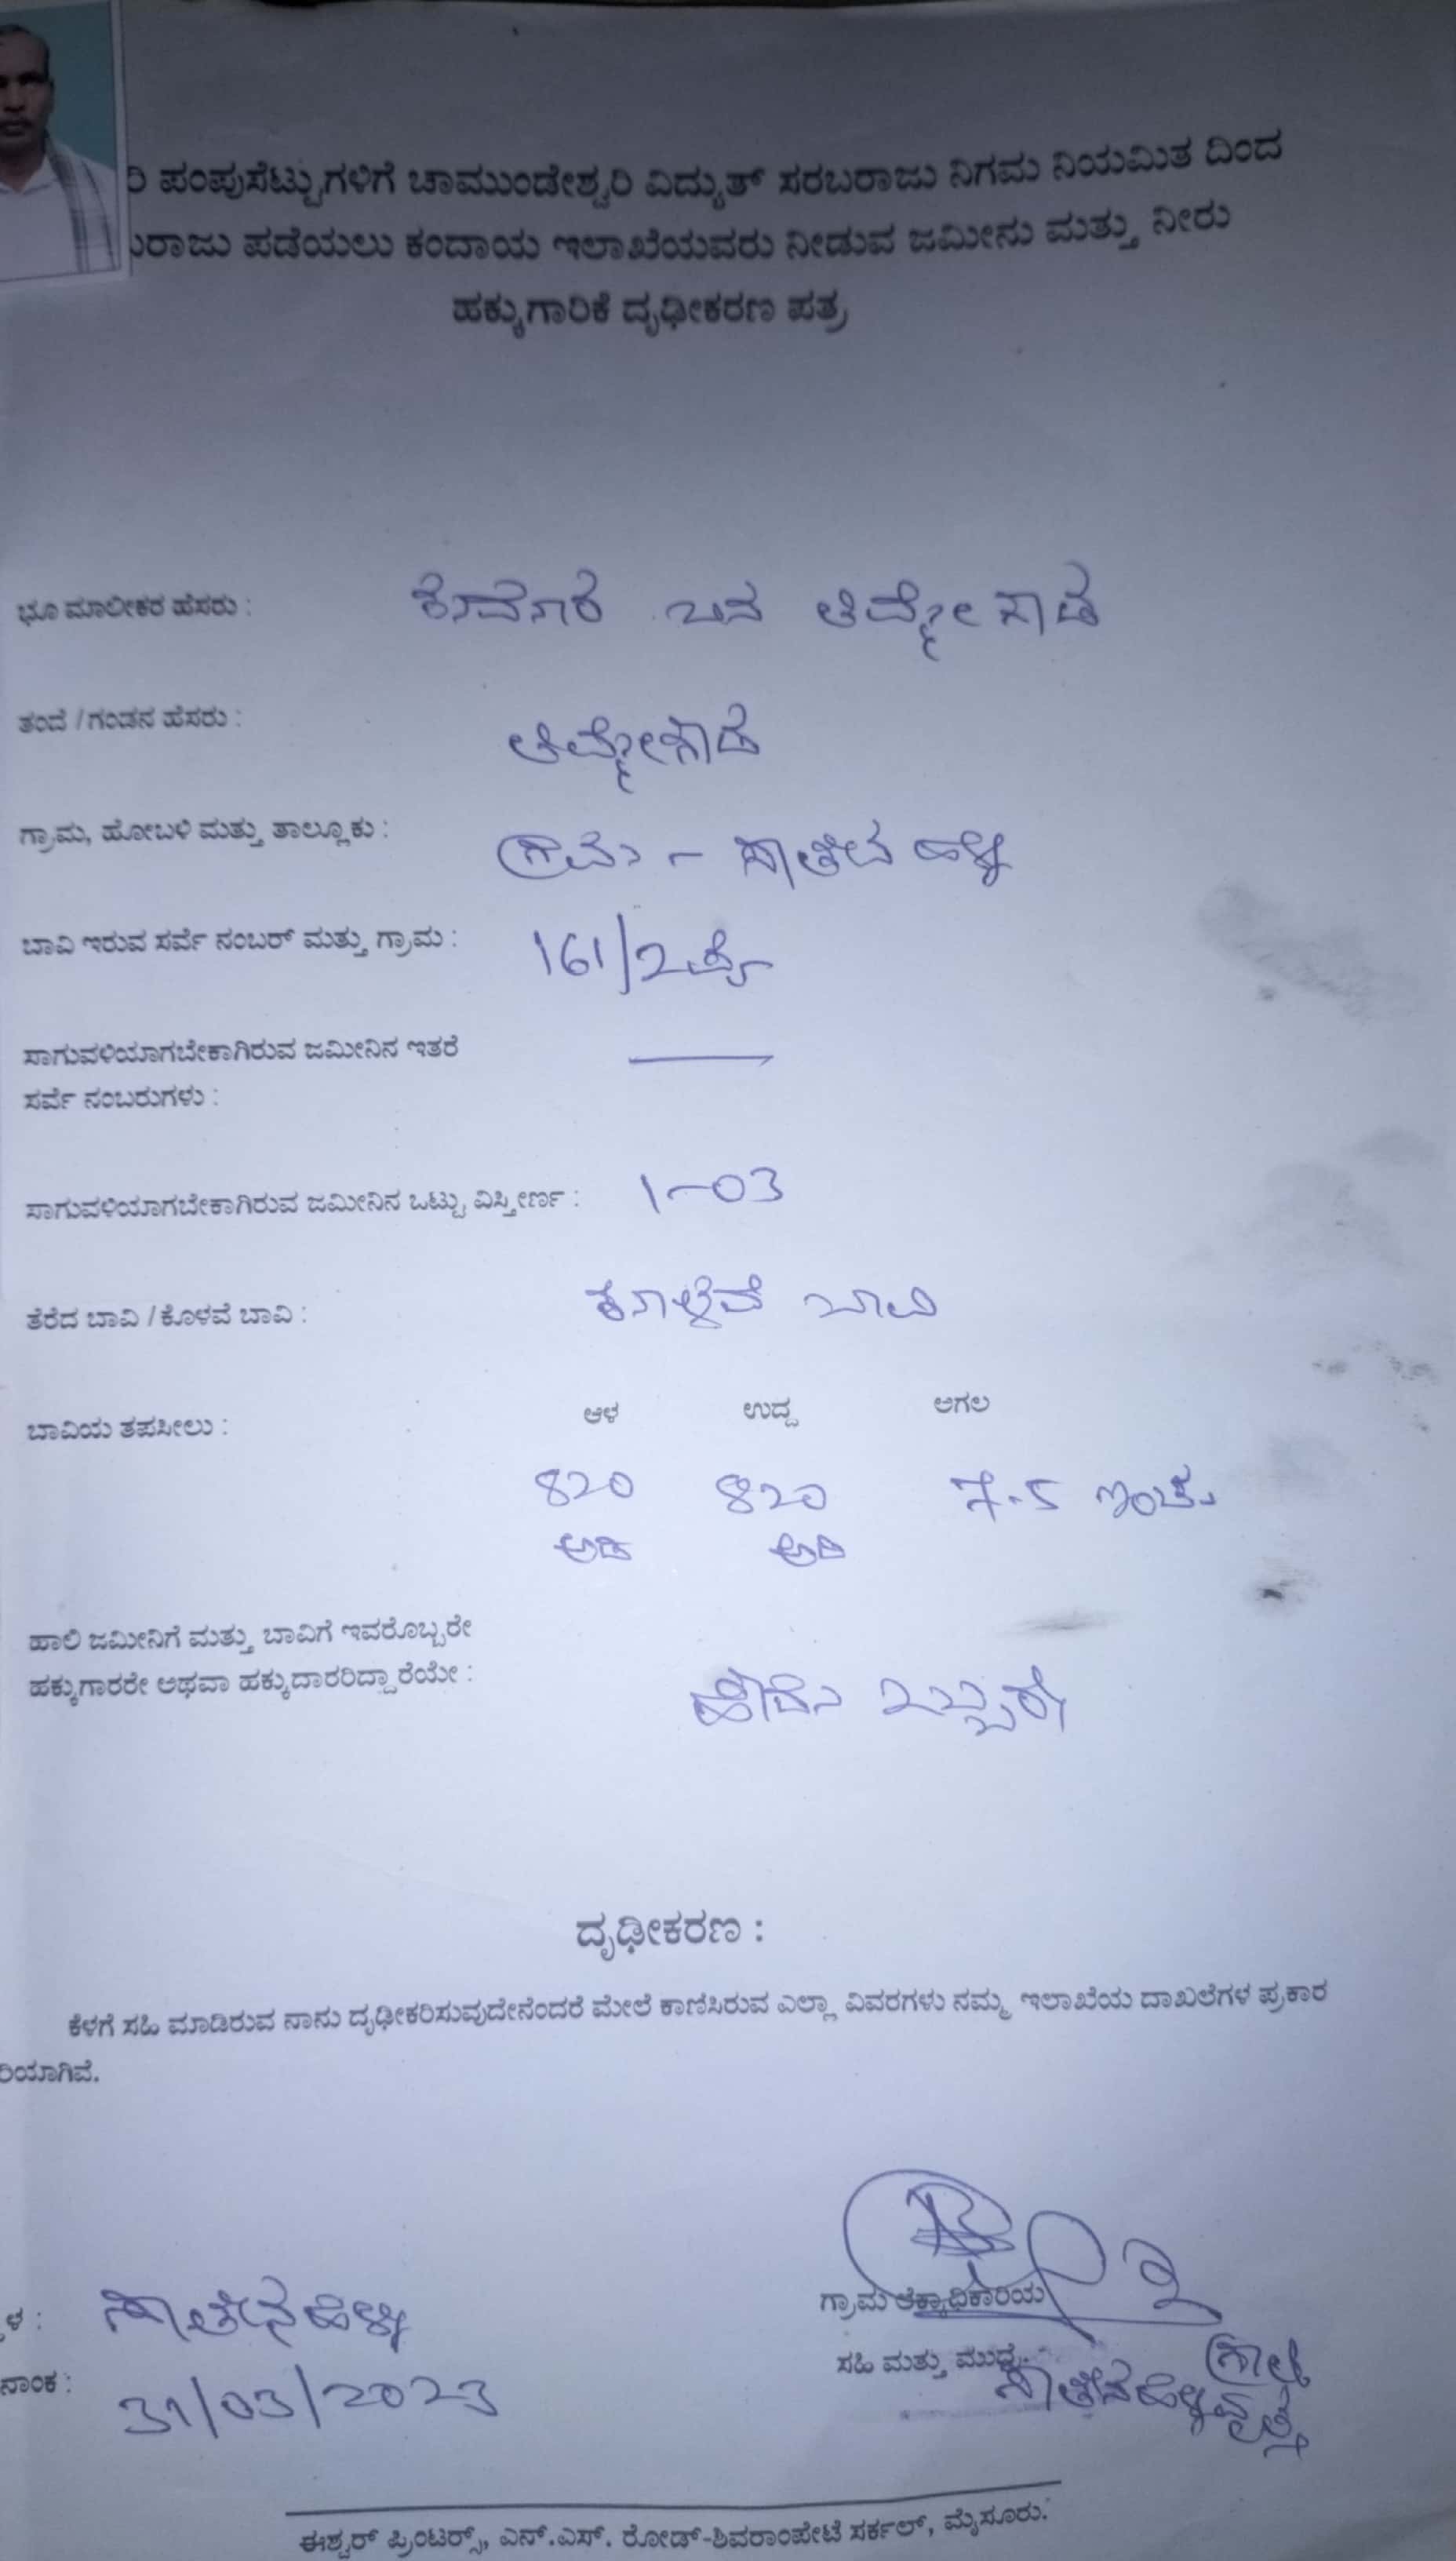 ಪಂಪುಸೆಟ್ಟುಗಳಿಗೆ ಚಾಮುಂಡೇಶ್ವರಿ ವಿದ್ಯುತ್ ಸರಬರಾಜು ನಿಗಮ ನಿಯಮಿತ ದಿಂದ
ಪಡೆಯಲು ಕಂದಾಯ ಇಲಾಖೆಯವರು ನೀಡುವ ಜಮೀನು ಮತ್ತು ನೀರು
ಹಕ್ಕುಗಾರಿಕೆ ದೃಢೀಕರಣ ಪತ್ರ
ಭೂ ಮಾಲೀಕರ ಹೆಸರು : ಬಿನ್ ತಿಮ್ಮೇಗೌಡ
ತಂದೆ / ಗಂಡನ ಹೆಸರು : ತಿಮ್ಮೇಗೌಡ
ಗ್ರಾಮ, ಹೋಬಳಿ ಮತ್ತು ತಾಲ್ಲೂಕು : ಗ್ರಾಮ -
ಬಾವಿ ಇರುವ ಸರ್ವೆ ನಂಬರ್ ಮತ್ತು ಗ್ರಾಮ : 161/2
ಸಾಗುವಳಿಯಾಗಬೇಕಾಗಿರುವ ಜಮೀನಿನ ಇತರೆ
ಸರ್ವೆ ನಂಬರುಗಳು :
ಸಾಗುವಳಿಯಾಗಬೇಕಾಗಿರುವ ಜಮೀನಿನ ಒಟ್ಟು ವಿಸ್ತೀರ್ಣ : 1-03
ತೆರೆದ ಬಾವಿ / ಕೊಳವೆ ಬಾವಿ : ಕೊಳವೆ ಬಾವಿ
ಬಾವಿಯ ತಪಸೀಲು : ಆಳ ಉದ್ದ ಅಗಲ
820 820 7.5 ಇಂಚು
ಅಡಿ ಅಡಿ
ಹಾಲಿ ಜಮೀನಿಗೆ ಮತ್ತು ಬಾವಿಗೆ ಇವರೊಬ್ಬರೇ
ಹಕ್ಕುಗಾರರೇ ಅಥವಾ ಹಕ್ಕುದಾರರಿದ್ದಾರೆಯೇ : ಹೌದು ಒಬ್ಬರೇ
ದೃಢೀಕರಣ :
ಕೆಳಗೆ ಸಹಿ ಮಾಡಿರುವ ನಾನು ದೃಢೀಕರಿಸುವುದೇನೆಂದರೆ ಮೇಲೆ ಕಾಣಿಸಿರುವ ಎಲ್ಲಾ ವಿವರಗಳು ನಮ್ಮ ಇಲಾಖೆಯ ದಾಖಲೆಗಳ ಪ್ರಕಾರ
ರಿಯಾಗಿವೆ.
ಗ್ರಾಮ ಲೆಕ್ಕಾಧಿಕಾರಿಯ
ಸಹಿ ಮತ್ತು ಮುದ್ರೆ
ನಾಂಕ : 31/03/2023
ಈಶ್ವರ್ ಪ್ರಿಂಟರ್ಸ್, ಎನ್.ಎಸ್. ರೋಡ್-ಶಿವರಾಂಪೇಟೆ ಸರ್ಕಲ್, ಮೈಸೂರು.